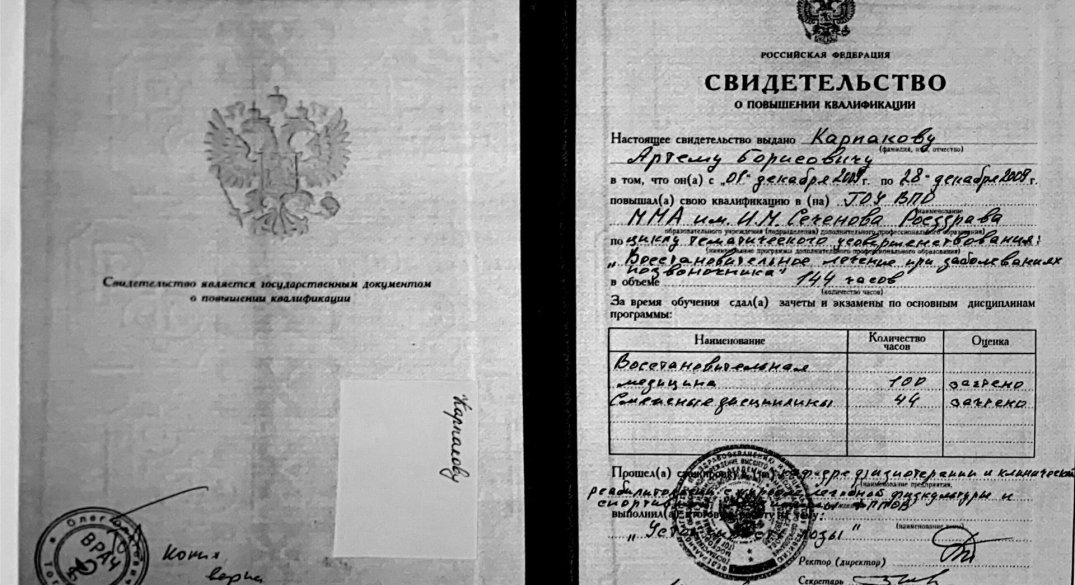 Свидетельство является государственным документом
о повышении квалификации
Карпакову
Олег
ВРАЧ
Копия
верна
РОССИЙСКАЯ ФЕДЕРАЦИЯ
СВИДЕТЕЛЬСТВО
О ПОВЫШЕНИИ КВАЛИФИКАЦИИ
Настоящее свидетельство выдано Карпакову
(фамилия, имя, отчество)
Артему Борисовичу
в том, что он(а) с „01“ декабря 2009 г. по 28 декабря 2009 г.
повышал(а) свою квалификацию в (на) ГОУ ВПО
(наименование
ММА им. И.М. Сеченова Росздрава
образовательного учреждения (подразделения) дополнительного профессионального образования)
по циклу тематического усовершенствования:
(наименование программы дополнительного профессионального образования)
„Восстановительное лечение при заболеваниях
позвоночника“
в объеме 144 часов
(количество часов)
За время обучения сдал(а) зачеты и экзамены по основным дисциплинам
программы:
Наименование Количество часов Оценка
Восстановительная
медицина 100 зачтено
Смежные дисциплины 44 зачтено
Прошел(а) стажировку в (на) кафедре физиотерапии и клинической
(наименование предприятия,
реабилитологии с курсом лечебной физкультуры и
выполнил(а) итоговую работу на тему:
(наименование темы)
Ректор (директор)
Секретарь